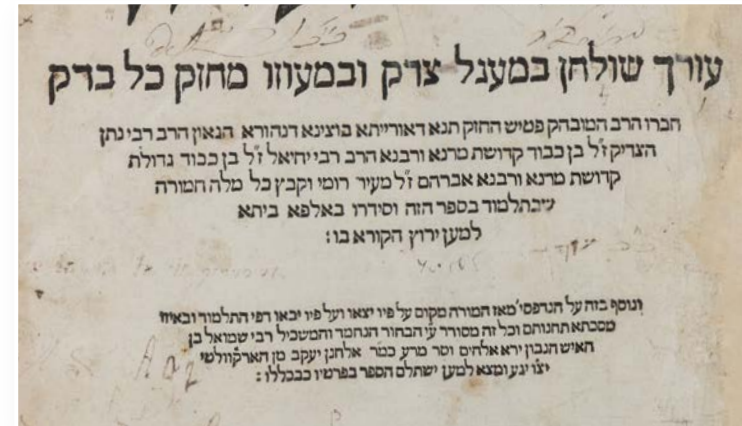 עורך שולחן במעגל צדק ובמעוזו מחזק כל בדק
חברו הרב המובהק פטיש החזק תנא דאורייתא בוצינא דנהורא הגאון הרב רבי נתן
הצדיק ז"ל בן כבוד קדושת מרנא ורבנא הרב רבי יחיאל ז"ל בן כבוד גדולת
קדושת מרנא ורבנא אברהם ז"ל מעיר רומי וקבץ כל מלה חמורה
שבתלמוד בספר הזה וסידרו באלפא ביתא
למען ירוץ הקורא בו :
ונוסף בזה על הנדפסי' מאז המורה מקום על פיו יצאו ועל פיו יבאו דפי התלמוד ובאיזו
מסכתא תחנותם וכל זה מסודר ע"י הבחור הנחמד והמשכיל רבי שמואל בן
האיש הנבון ירא אלהים וסר מרע כמר אלחנן יעקב מן הארקוולטי
יצ"ו יגע ומצא למען ישתלם הספר בפרטיו כבכללו :